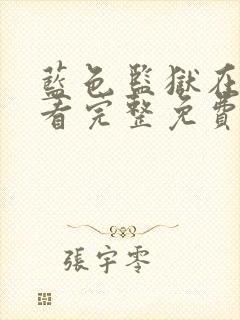 藍色監獄在
看完整免費
張宇零